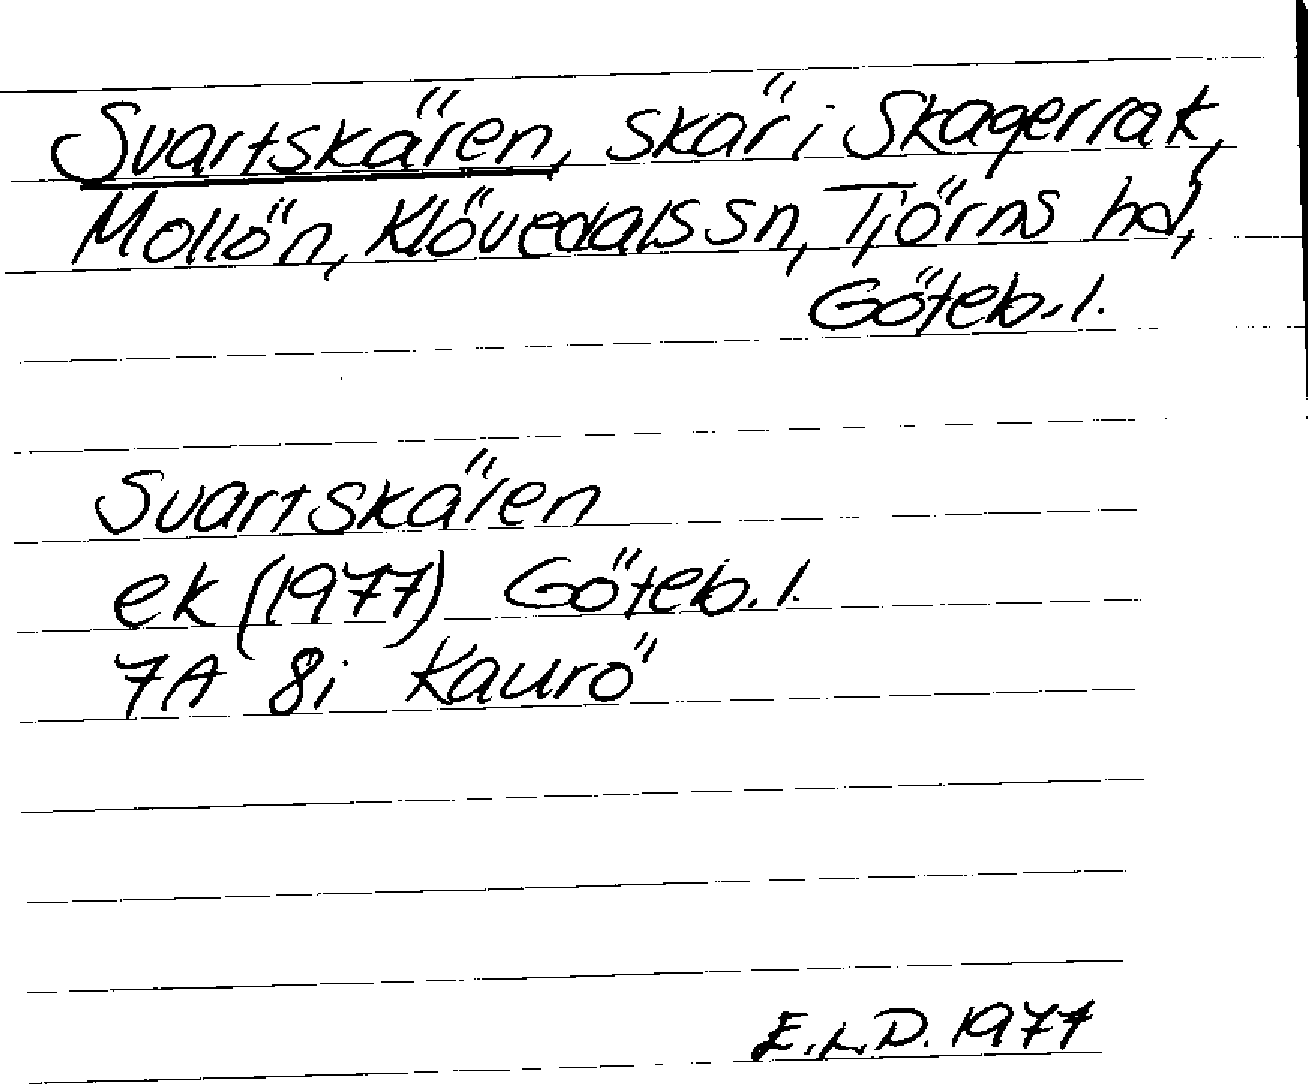 Svartskären, skär i Skagerrak,
Mollön, Klövedals sn, Tjörns hd,
Göteb. l.
Svartskären
ek (1977) Göteb. l.
7A 8i Kaurö
E.L.D. 1977